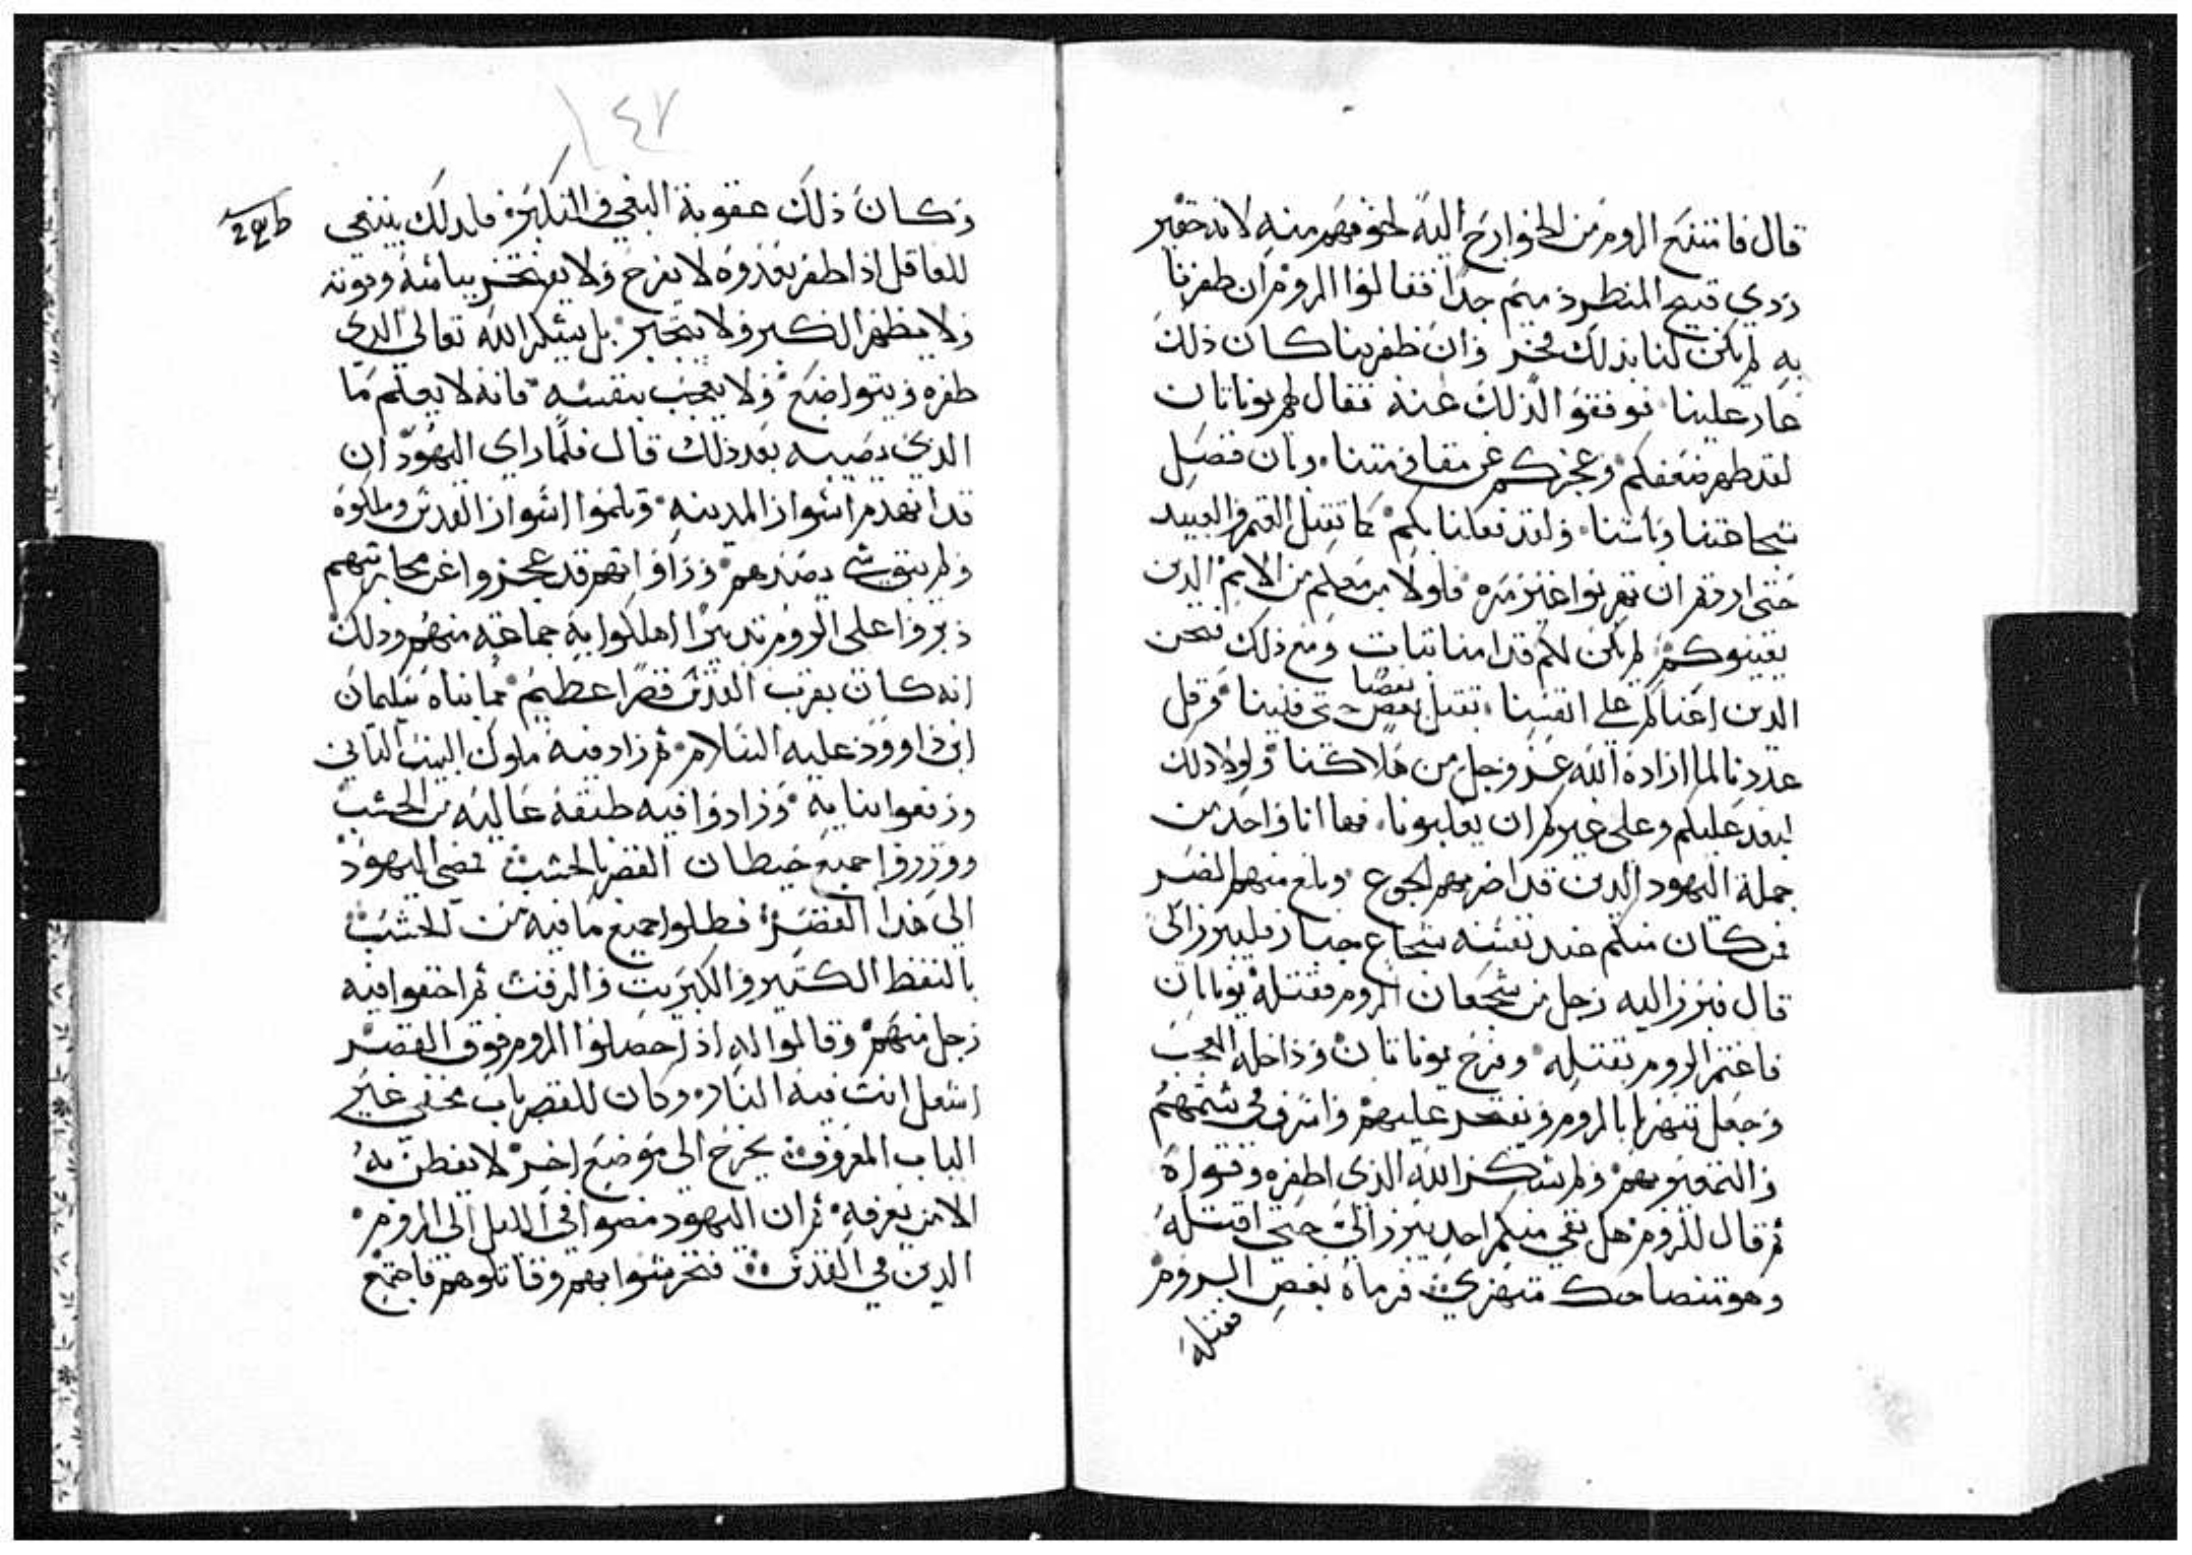 قال فامتنع الروم من الخوارج اليه لخوفهم منه لانه حقير
ردي قبيح المنظر ذميم جدا فقالوا الروم ان ظفرنا
به لم يكن لنا بذلك فخر وان ظفر بنا كان ذلك
عار علينا فوقفوا لذلك عنه فقال لهم يوناتان
لقد ظهر ضعفكم وعجزكم عن مقاومتنا وبان فضل
شجاعتنا وباسنا ولقد فعلنا بكم كما تقبل الغنم والعبيد
حتى اردتم ان تهربوا غير مره فلولا من معكم من الامم الذين
يعينوكم لم يكن لكم قدامنا ثبات ومع ذلك فنحن
الذين اعناكم على انفسنا بقتل بعض
بعضا
حتى فنينا وقل
عددنا لما اراده الله عز وجل من هلاكنا ولولا ذلك
لبعد عليكم وعلى غيركم ان يغلبونا فها انا واحد من
جملة اليهود الذين قد اضر بهم الجوع وبلغ منهم الضر
فمن كان منكم عند نفسه شجاع جبار فليبرز الى
قال فبرز اليه رجل من شجعان الروم فقتله يوناتان
فاغتم الروم بقتله وفرح يوناتان وداخله العجب
وجعل يتهزا بالروم ويفتخر عليهم واسرف في شتمهم
والتمقيو بهم ولم يشكر الله الذي اظفره وقواه
ثم قال للروم هل بقي منكم احد يبرز الي حتى اقتله
وهو متضاحك متهزي فرماه بعض الروم
فقتله
١٤٧
وكان ذلك عقوبة البغي في التكبر فلذلك ينبغي
للعاقل اذا ظفر بعدوه لا يفرح ولا يفتخر بباسه وقوته
ولا يظهر الكبر ولا يتجبر بل يشكر الله تعالى الذي
ظفره ويتواضع ولا يعجب بنفسه فانه لا يعلم ما
الذي يصيبه بعد ذلك قال فلما راى اليهود ان
قد انهدم اسوار المدينه وثلموا اسوار القدس وملكوه
ولم يبق شي يصدهم وراوا انهم قد عجزوا عن محاربتهم
دبروا على الروم تدبيرا اهلكوا به جماعه منهم وذلك
انه كان بقرب القدس قصرا عظيم مما بناه سليمان
ابن داوود عليه السلام ثم زاد فيه ملوك البيت الثاني
ورفعوا بنايه وزادوا فيه طبقه عاليه من الخشب
ووزروا جميع حيطان القصر بالخشب فمضى اليهود
الى هذا القصر فطلوا جميع ما فيه من الخشب
بالنفط الكتير والكبريت والزفت ثم اخفوا فيه
رجل منهم وقالوا له اذا حصلوا الروم فوق القصر
اشعل انت فيه النار وكان للقصر باب مخفي غير
الباب المعروف يخرج الى موضع اخر لا يفطن به
الا من يعرفه ثم ان اليهود مضوا في الليل الى الروم
الذين في القدس فتحرشوا بهم وقاتلوهم فاجتمع